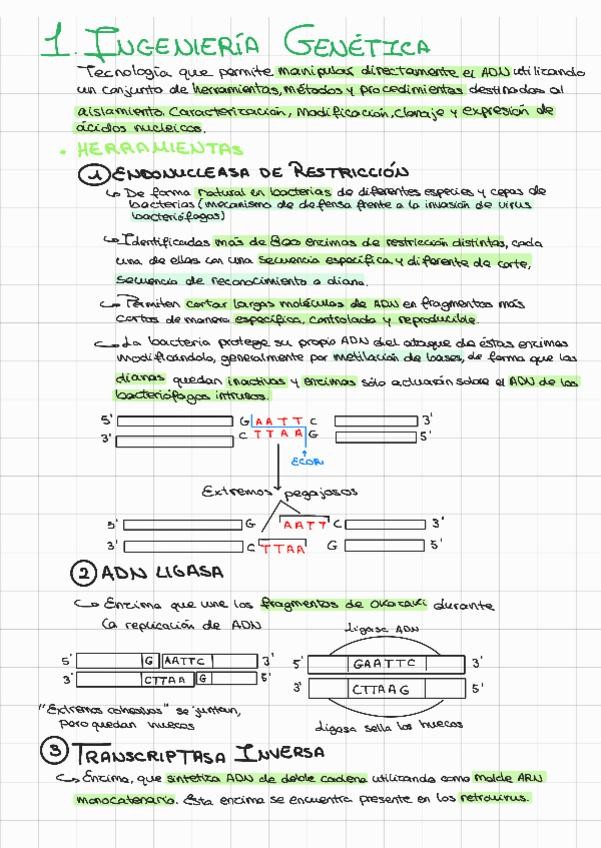 1. INGENIERÍA GENÉTICA
Tecnología que permite manipular directamente el ADN utilizando
un conjunto de herramientas, métodos y procedimientos destinados al
aislamiento, caracterización, modificación, clonaje y expresión de
ácidos nucleicos.
• HERRAMIENTAS
1 ENDONUCLEASA DE RESTRICCIÓN
↳ De forma natural en bacterias de diferentes especies y cepas de
bacterias (mecanismo de defensa frente a la invasión de virus
bacteriófagos)
↳ Identificadas más de 800 enzimas de restricción distintas, cada
una de ellas con una secuencia específica y diferente de corte,
secuencia de reconocimiento o diana.
↳ Permiten cortar largas moléculas de ADN en fragmentos más
cortos de manera específica, controlada y reproducible.
↳ La bacteria protege su propio ADN del ataque de éstas enzimas
modificándolo, generalmente por metilación de bases, de forma que las
dianas quedan inactivas y enzimas sólo actuarán sobre el ADN de los
bacteriófagos intrusos.
5' G AATT C 3'
3' C TTAA G 5'
ECORI
Extremos pegajosos
5' G AATT C 3'
3' C TTAA G 5'
2 ADN LIGASA
↳ Enzima que une los fragmentos de Okazaki durante
la replicación de ADN
Ligasa ADN
5' G AATTC 3' 5' GAATTC 3'
3' CTTAA G 5' 3' CTTAAG 5'
"Extremos cohesivos" se juntan,
pero quedan huecos
Ligasa sella los huecos
3 TRANSCRIPTASA INVERSA
↳ Enzima, que sintetiza ADN de doble cadena utilizando como molde ARN
monocatenario. Esta enzima se encuentra presente en los retrovirus.